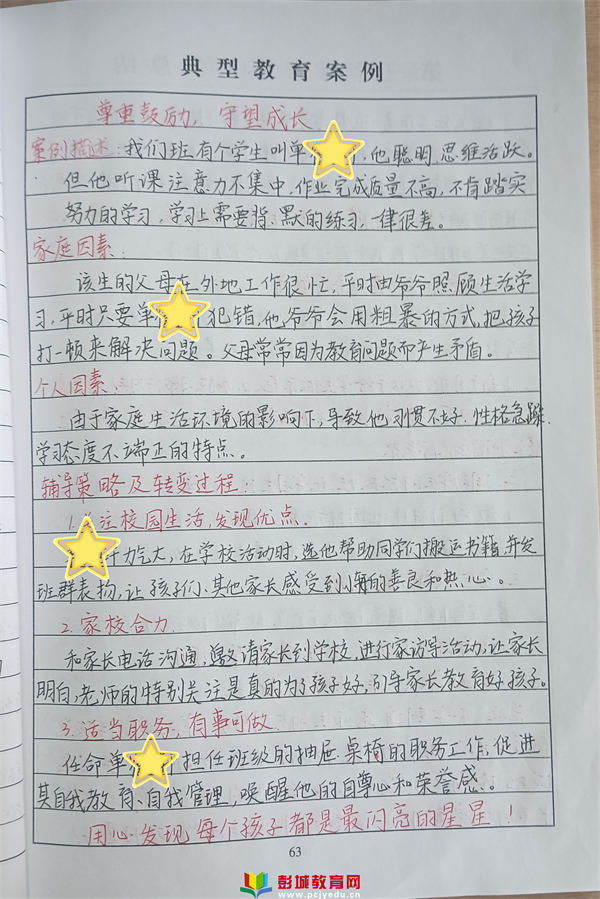 典型教育案例
尊重鼓励，守望成长
案例描述：我们班有个学生叫单，他聪明，思维活跃。
但他听课注意力不集中，作业完成质量不高，不肯踏实
努力的学习，学习上需要背、默的练习，一律很差。
家庭因素：
该生的父母在外地工作很忙，平时由爷爷照顾生活学
习，平时只要单犯错，他爷爷会用粗暴的方式，把孩子
打一顿来解决问题。父母常常因为教育问题而产生矛盾。
个人因素：
由于家庭生活环境的影响下，导致他习惯不好，性格急躁，
学习态度不端正的特点。
辅导策略及转变过程：
1.注校园生活，发现优点.
力气大，在学校活动时，选他帮助同学们搬运书籍，并发
班群表扬，让孩子们、其他家长感受到的善良和热心。
2.家校合力.
和家长电话沟通，邀请家长到学校，进行家访等活动，让家长
明白，老师的特别关注是真的为了孩子好，引导家长教育好孩子。
3.适当职务，有事可做.
任命单担任班级的抽屉、桌椅的职务工作，促进
其自我教育、自我管理，唤醒他的自尊心和荣誉感。
用心发现每个孩子都是最闪亮的星星！
63
彭城教育网
www.pcjyedu.cn